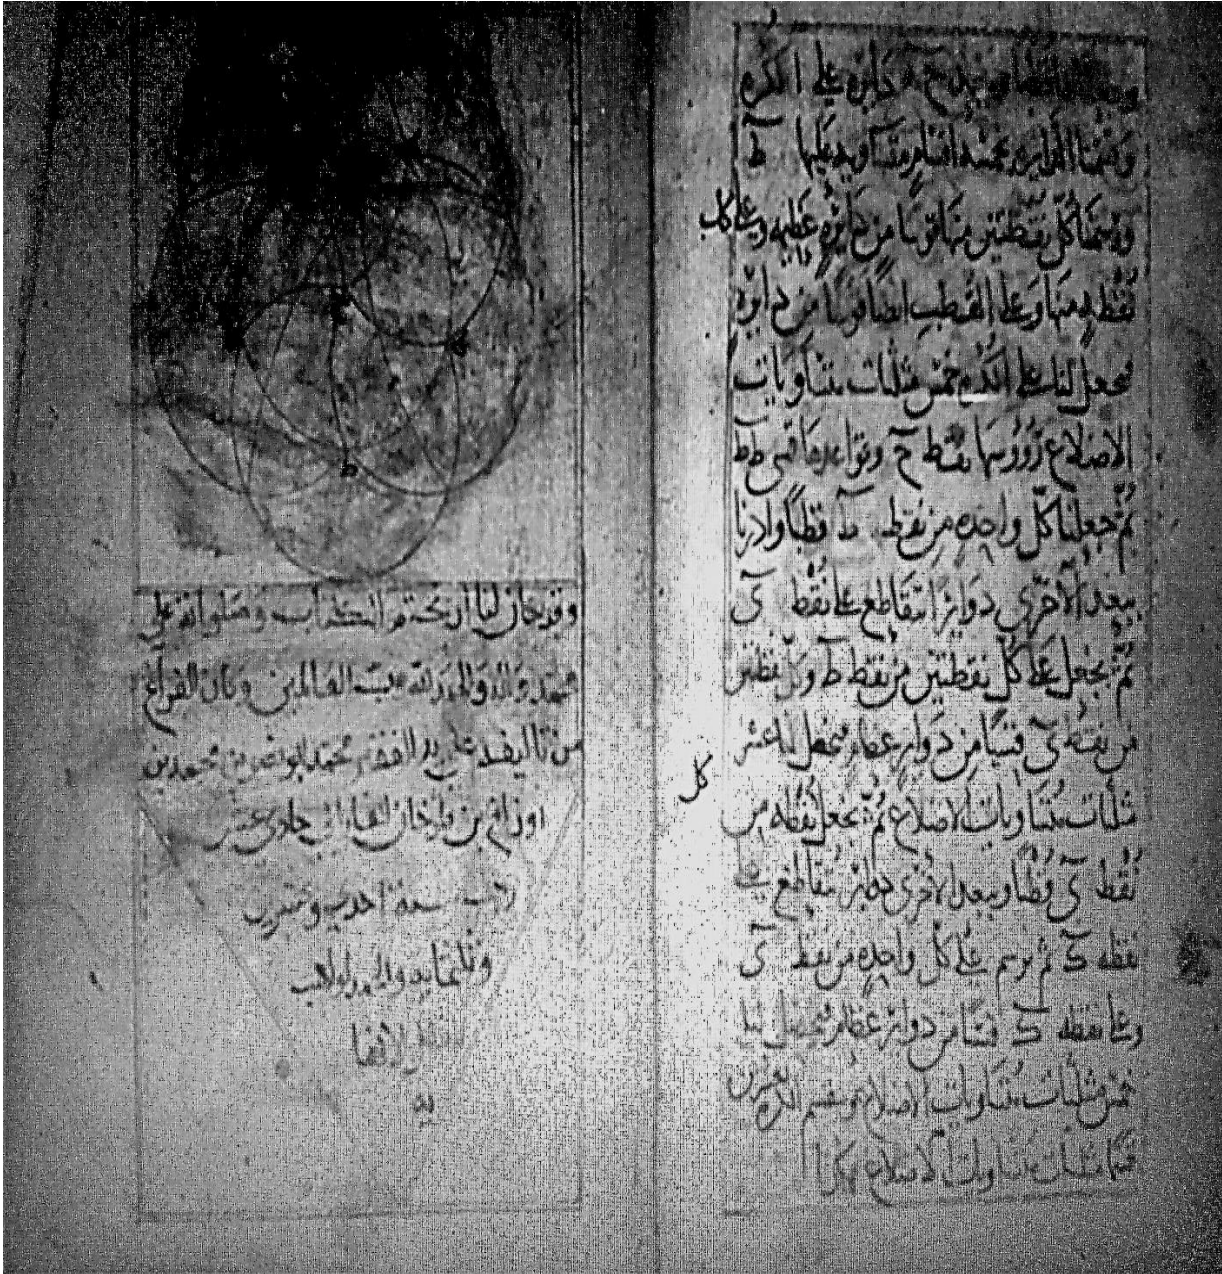 دايره على الكره
وقسمنا الدايره بخمسه اقسام متساويه عليها ط
ورسمنا كل نقطتين منها قوسا من دايره عظيمه وعلى كل
نقطه منها وعلى القطب ايضا قوسا من دايره
فيحصل لنا على الكره خمس مثلثات متساويات
الاضلاع رووسها نقط ح وقواعدها قسى ط ط
ثم جعلنا كل واحده من نقط ط قطبا وادرنا
ببعد الاخرى دوايرا تتقاطع على نقط ى
ثم نجعل على كل نقطتين من نقط ط وكل نقطتين
من نقطه ى قسيا من دواير عظام فيحصل لنا عشر
كل
مثلثات متساويات الاضلاع ثم نجعل نقطه من
نقط ى قطبا وببعد الاخرى دواير تتقاطع على
نقطه ك ثم نرسم على كل واحده من نقط ى
وعلى نقطه ك قسيا من دواير عظام فيحصل لنا
خمس مثلثات متساويات الاضلاع وينقسم الكره
مثلثات متساويات الاضلاع
ط
وقد حان لنا ان نختم الكتاب وصلواته على
محمد واله والحمد لله رب العالمين وكان الفراغ
من تاليفه على يد الفقير محمد ابو نصر بن محمد بن
اوزلغ بن طرخان الفارابي حادي عشر
سنه احدى وعشرين
وثلثمايه والحمد لواهب